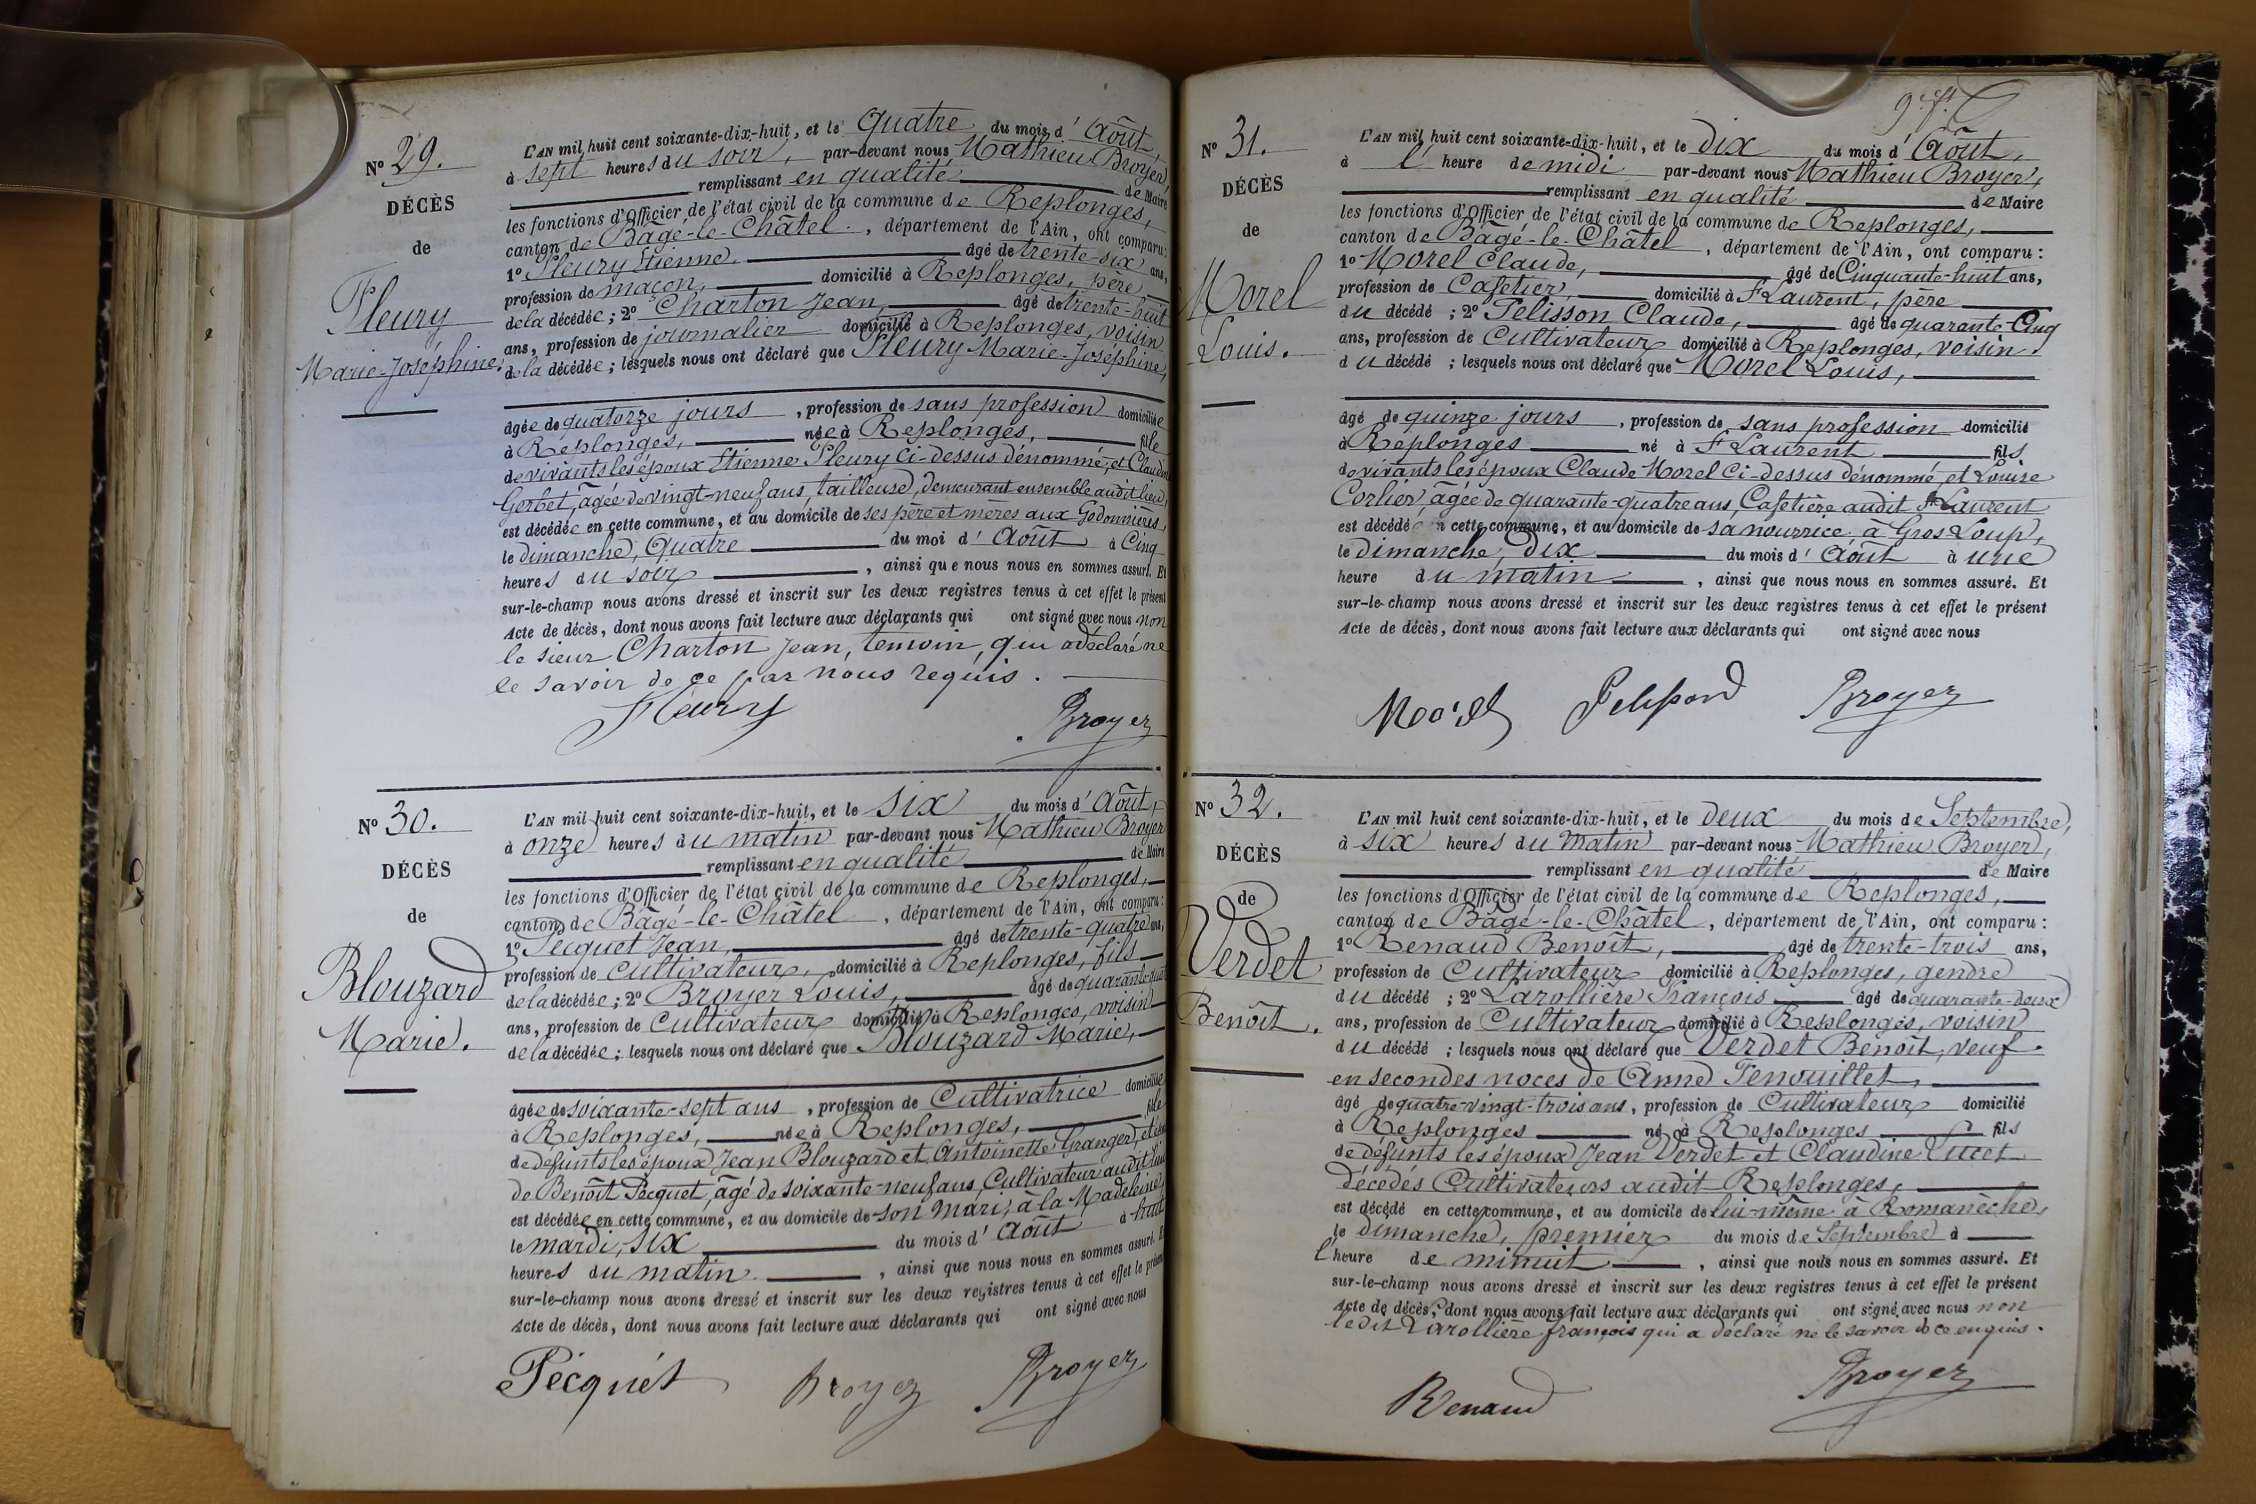 N° 29.
DÉCÈS
de
Fleury
Marie-Joséphine.
L'AN mil huit cent soixante-dix-huit, et le Quatre du mois d'Août,
à sept heures du soir, par-devant nous Mathieu Broyer,
remplissant en qualité de Maire
les fonctions d'Officier de l'état civil de la commune de Replonges,
canton de Bâgé-le-Châtel, département de l'Ain, ont comparu:
1° Fleury Etienne, âgé de trente-six ans,
profession de maçon, domicilié à Replonges, père
de la décédée; 2° Charton Jean, âgé de trente-huit
ans, profession de journalier domicilié à Replonges, voisin
de la décédée; lesquels nous ont déclaré que Fleury Marie-Joséphine,
âgée de quatorze jours, profession de sans profession domiciliée
à Replonges, née à Replonges, fille
de vivants les époux Etienne Fleury ci-dessus dénommé, et Claudine
Gerbet, âgée de vingt-neuf ans, tailleuse, demeurant ensemble audit lieu,
est décédée en cette commune, et au domicile de ses père et mères aux Godonnières,
le Dimanche, Quatre du moi d'Août à Cinq
heures du soir, ainsi que nous nous en sommes assuré. Et
sur-le-champ nous avons dressé et inscrit sur les deux registres tenus à cet effet le présent
Acte de décès, dont nous avons fait lecture aux déclarants qui ont signé avec nous non
le sieur Charton Jean, temoin, qui a déclaré ne
le savoir de ce par nous requis.
Fleury Broyer
N° 30.
DÉCÈS
de
Blouzard
Marie.
L'AN mil huit cent soixante-dix-huit, et le six du mois d'Août,
à onze heures du matin par-devant nous Mathieu Broyer
remplissant en qualité de Maire
les fonctions d'Officier de l'état civil de la commune de Replonges,
canton de Bâgé-le-Châtel, département de l'Ain, ont comparu:
1° Pecquet Jean, âgé de trente-quatre ans,
profession de cultivateur, domicilié à Replonges, fils
de la décédée; 2° Broyer Louis, âgé de
ans, profession de cultivateur domicilié à Replonges, voisin
de la décédée; lesquels nous ont déclaré que Blouzard Marie,
âgée de soixante-sept ans, profession de Cultivatrice domiciliée
à Replonges, née à Replonges, fille
de défunts les époux Jean Blouzard et Antoinette Granger, et
de Benoît Pecquet, âgé de soixante-neuf ans, Cultivateur audit lieu
est décédée en cette commune, et au domicile de son mari, à la Madeleine,
le mardi, six du mois d'Août à huit
heures du matin, ainsi que nous nous en sommes assuré. Et
sur-le-champ nous avons dressé et inscrit sur les deux registres tenus à cet effet le présent
Acte de décès, dont nous avons fait lecture aux déclarants qui ont signé avec nous
Pécquét Broyer Broyer
N° 31.
DÉCÈS
de
Morel
Louis.
L'AN mil huit cent soixante-dix-huit, et le dix du mois d'Août,
à l'heure de midi par-devant nous Mathieu Broyer,
remplissant en qualité de Maire
les fonctions d'Officier de l'état civil de la commune de Replonges,
canton de Bâgé-le-Châtel, département de l'Ain, ont comparu:
1° Morel Claude, âgé de Cinquante-huit ans,
profession de Cafetier, domicilié à St Laurent, père
du décédé; 2° Pelisson Claude, âgé de quarante-Cinq
ans, profession de Cultivateur domicilié à Replonges, voisin.
du décédé; lesquels nous ont déclaré que Morel Louis,
âgé de quinze jours, profession de sans profession domicilié
à Replonges né à St Laurent fils
de vivants les époux Claude Morel ci-dessus dénommé, et Louise
Corlier, âgée de quarante-quatre ans, Cafetière audit St Laurent
est décédé en cette commune, et au domicile de sa nourrice à Gros-Loup,
le dimanche, dix du mois d'Août à une
heure du matin, ainsi que nous nous en sommes assuré. Et
sur-le-champ nous avons dressé et inscrit sur les deux registres tenus à cet effet le présent
Acte de décès, dont nous avons fait lecture aux déclarants qui ont signé avec nous
Morel Broyer
N° 32.
DÉCÈS
de
Verdet
Benoît.
L'AN mil huit cent soixante-dix-huit, et le deux du mois de Septembre,
à six heures du matin par-devant nous Mathieu Broyer,
remplissant en qualité de Maire
les fonctions d'Officier de l'état civil de la commune de Replonges,
canton de Bâgé-le-Châtel, département de l'Ain, ont comparu:
1° Renaud Benoît, âgé de trente-trois ans,
profession de Cultivateur domicilié à Replonges, gendre
du décédé; 2° Larollière François âgé de quarante-deux
ans, profession de Cultivateur domicilié à Replonges, voisin
du décédé; lesquels nous ont déclaré que Verdet Benoît, veuf
en secondes noces de Anne Fenouillet,
âgé de quatre-vingt-trois ans, profession de Cultivateur domicilié
à Replonges né à Replonges fils
de défunts les époux Jean Verdet et Claudine
décédés Cultivateurs audit Replonges,
est décédé en cette commune, et au domicile de lui-même à Romanèche,
le dimanche, premier du mois de Septembre à
l'heure de minuit, ainsi que nous nous en sommes assuré. Et
sur-le-champ nous avons dressé et inscrit sur les deux registres tenus à cet effet le présent
Acte de décès, dont nous avons fait lecture aux déclarants qui ont signé avec nous non
ledit Larollière François qui a déclaré ne le savoir de ce enquis.
Renaud Broyer